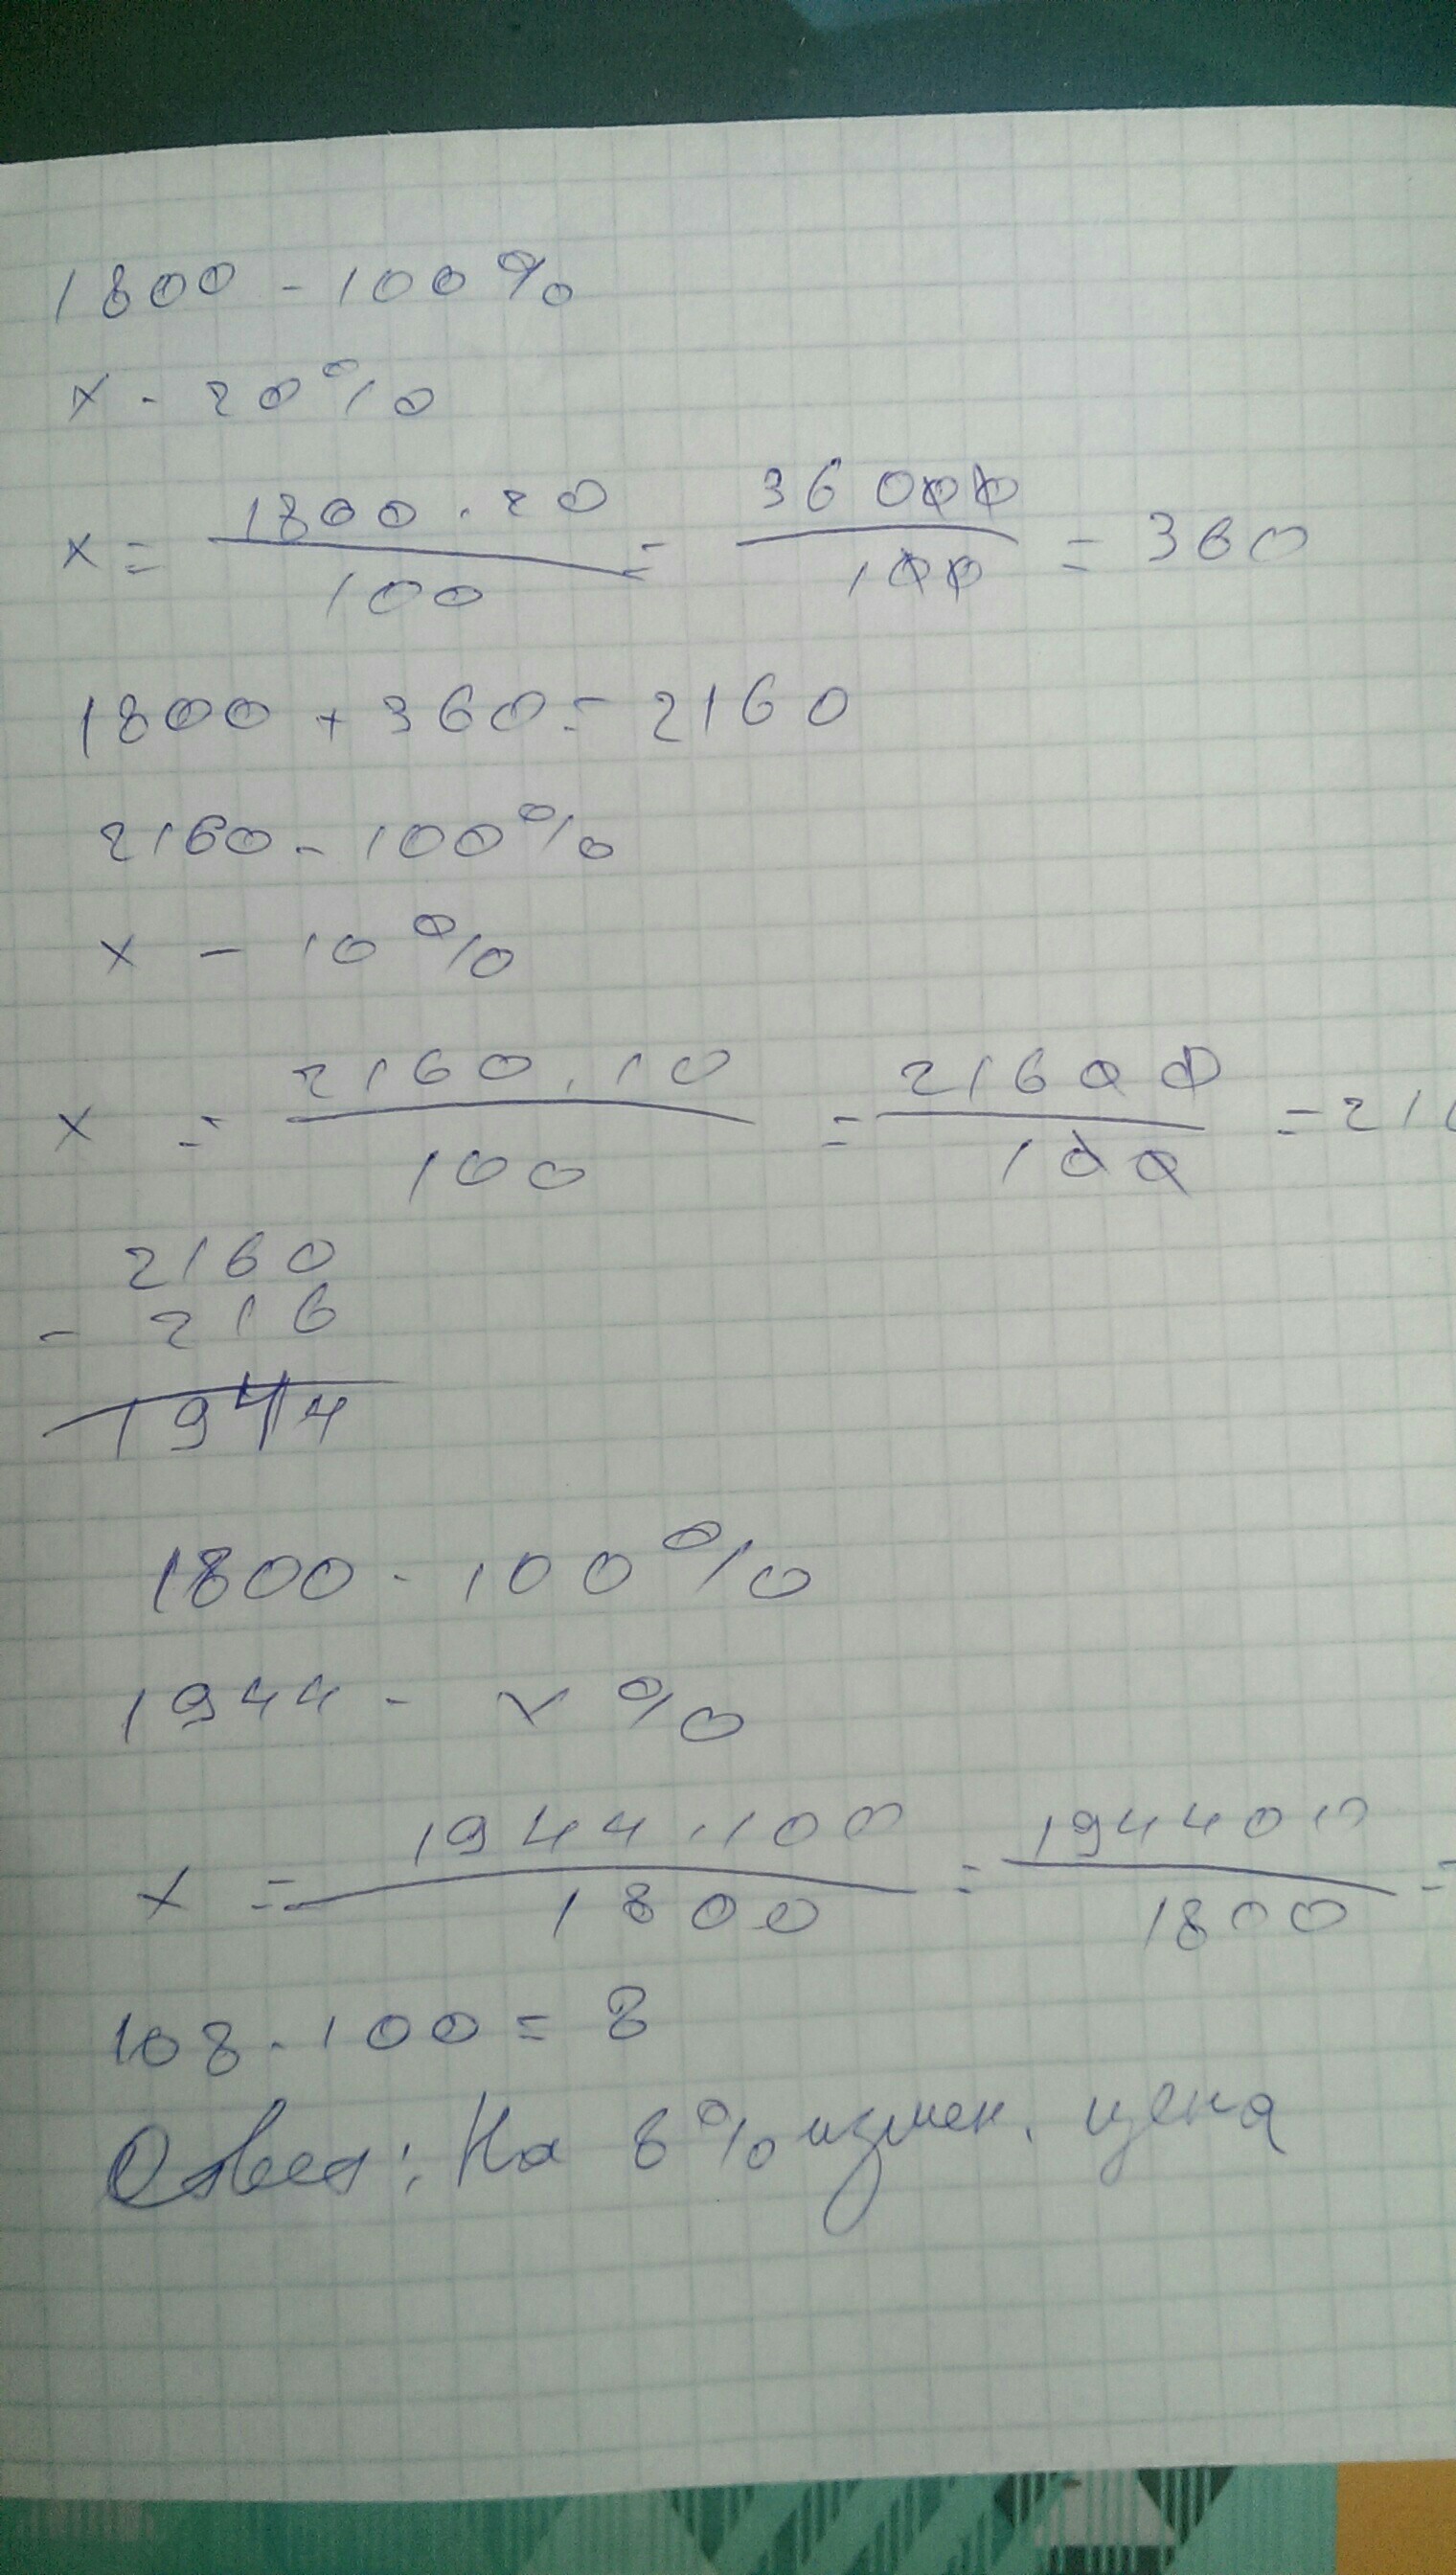 1800 - 100%
x - 20%
x = 1800 · 20 / 100 = 36000 / 100 = 360
1800 + 360 = 2160
2160 - 100%
x - 10%
x = 2160 · 10 / 100 = 21600 / 100 = 21
2160
- 216
1944
1800 - 100%
1944 - x %
x = 1944 · 100 / 1800 = 194400 / 1800 =
108 - 100 = 8
Ответ: На 8% измен. цена